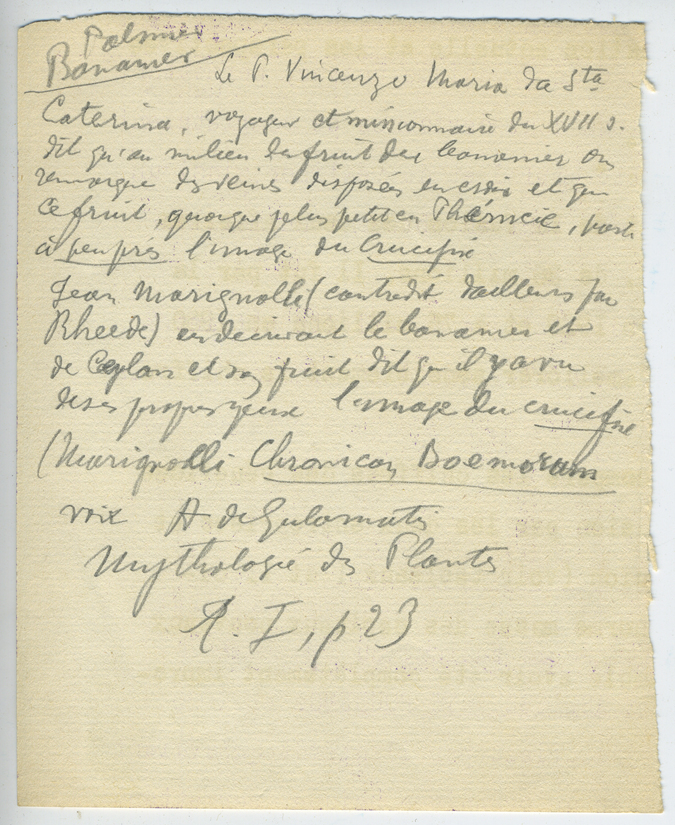 Palmier
Bananier
Le P. Vincenzo Maria da Sta
Caterina, voyageur et missionnaire du XVII s.
dit qu'au milieu du fruit du bananier on
remarque des veines disposées en croix et que
ce fruit, quoique plus petit en Phénicie, porte
à peu près l'image du Crucifix
Jean Marignolli (contredit d'ailleurs par
Rheede) en decrivant le bananier
de Ceylan et son fruit dit qu'il y a vu
de ses propres yeux l'image du crucifix
(Marignolli Chronicon Boemorum
voir A de Gubernatis
Mythologie des Plantes
T. I, p 23